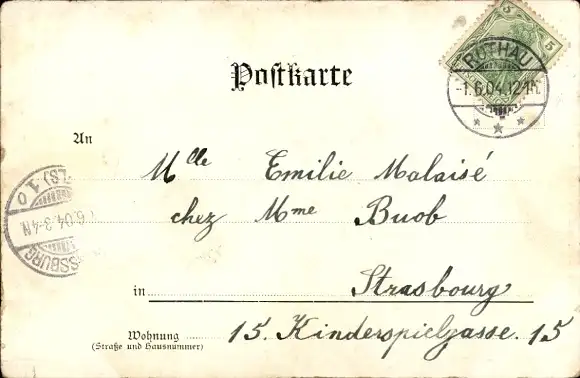 5 5
ROTHAU
-1.6.04.12-1N.
Postkarte
An
Mlle Emilie Malaisé
chez Mme Buob
in Strasbourg
Wohnung 15. Kinderspielgasse. 15
(Straße und Hausnummer)
6.04 3-4N
SSBURG